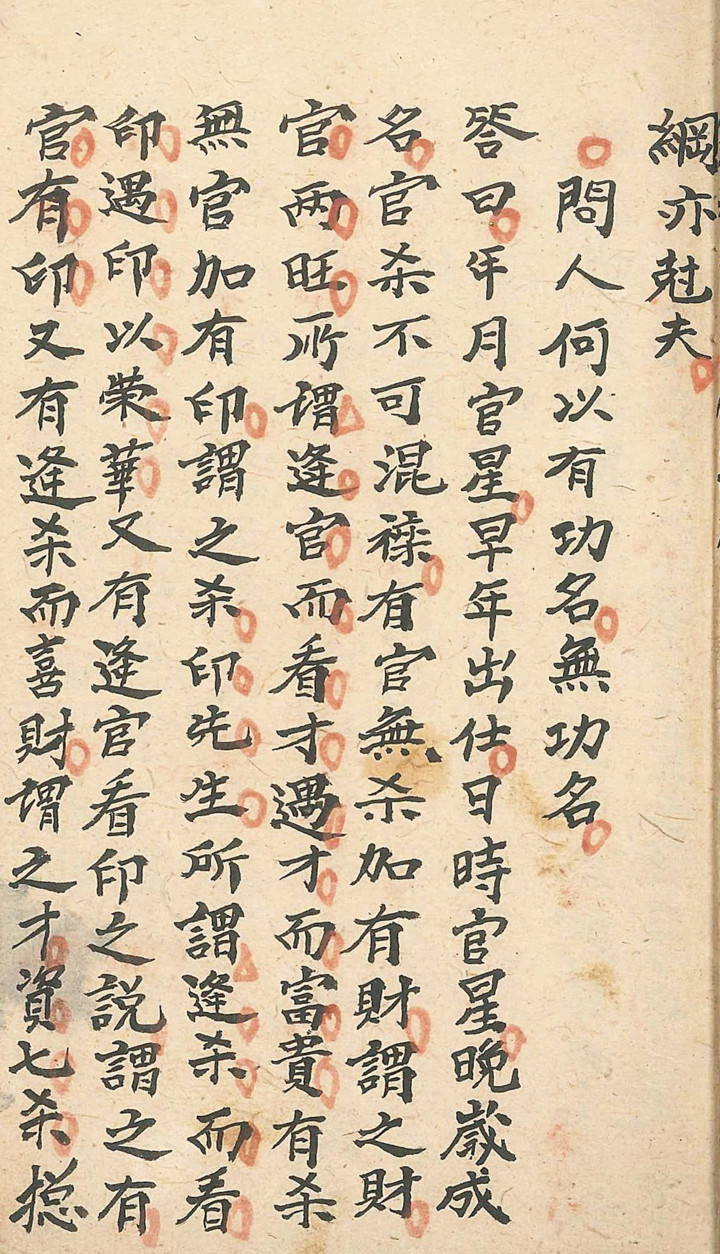 綱亦尅夫
問人何以有功名無功名
答曰年月官星早年出仕日時官星晚歲成
名官杀不可混襍有官無杀加有財謂之財
官两旺所谓逢官而看才遇才而富貴有杀
無官加有印謂之杀印先生所謂逢杀而看
印遇印以荣華又有逢官看印之説謂之有
官有印又有逢杀而喜財謂之才資七杀揔